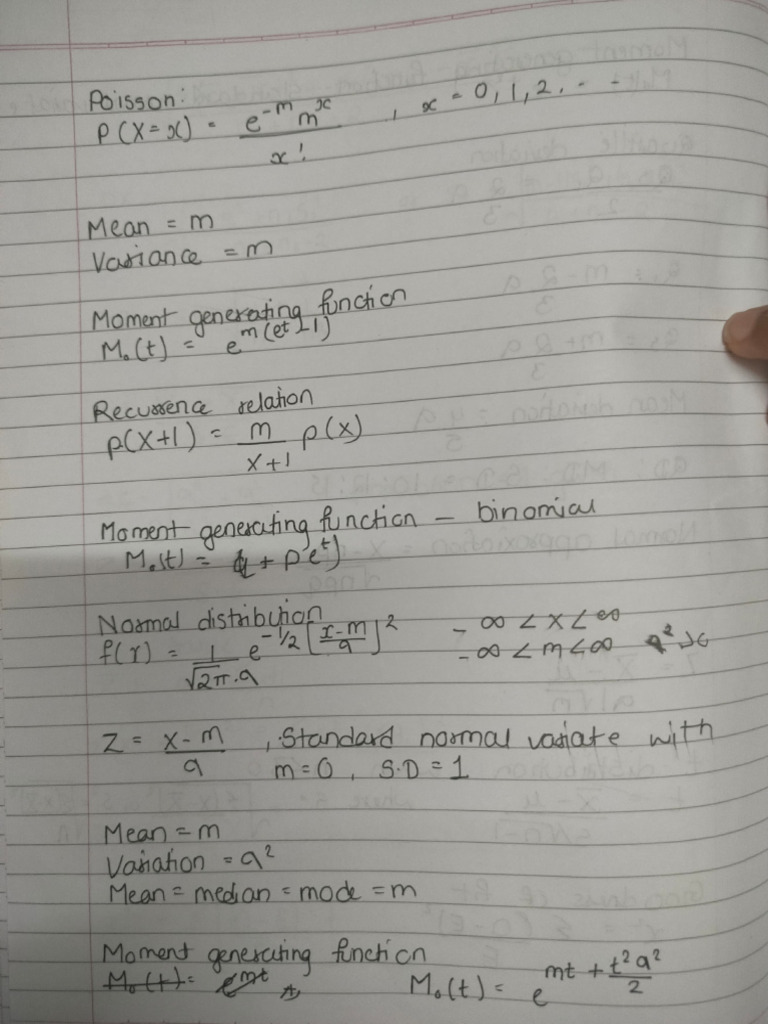 Poisson:
P(X=x) = e^{-m} m^x / x! , x = 0, 1, 2, - -
Mean = m
Variance = m
Moment generating function
M₀(t) = e^{m(et-1)}
Recurrence relation
p(x+1) = m / x+1 p(x)
Moment generating function - binomial
M₀(t) = (q + pe^t)
Normal distribution
f(x) = 1 / √2π.a e^{-1/2 [x-m / a]^2} -∞ < x < ∞
-∞ < m < ∞
Z = x-m / a , Standard normal variate with
m=0, S.D = 1
Mean = m
Variation = a²
Mean = median = mode = m
Moment generating function
M₀(t) = e^{mt} M₀(t) = e^{mt + t²a²/2}